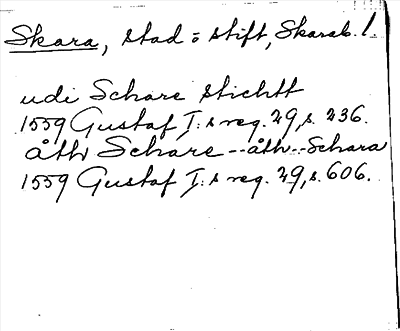 Skara, stad o stift, Skarab. l.
udi Schare stichtt
1559 Gustaf I:s reg. 29, s. 236.
åth Schare -- åth -- Schara
1559 Gustaf I:s reg. 29, s. 606.